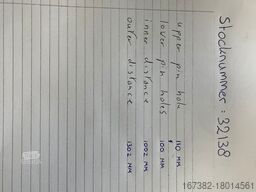 Stocknummer: 32138
upper pin hole 110 MM
lover pin holes 100 MM
inner distance 1002 MM
outer distance 1302 MM
167382-18014561